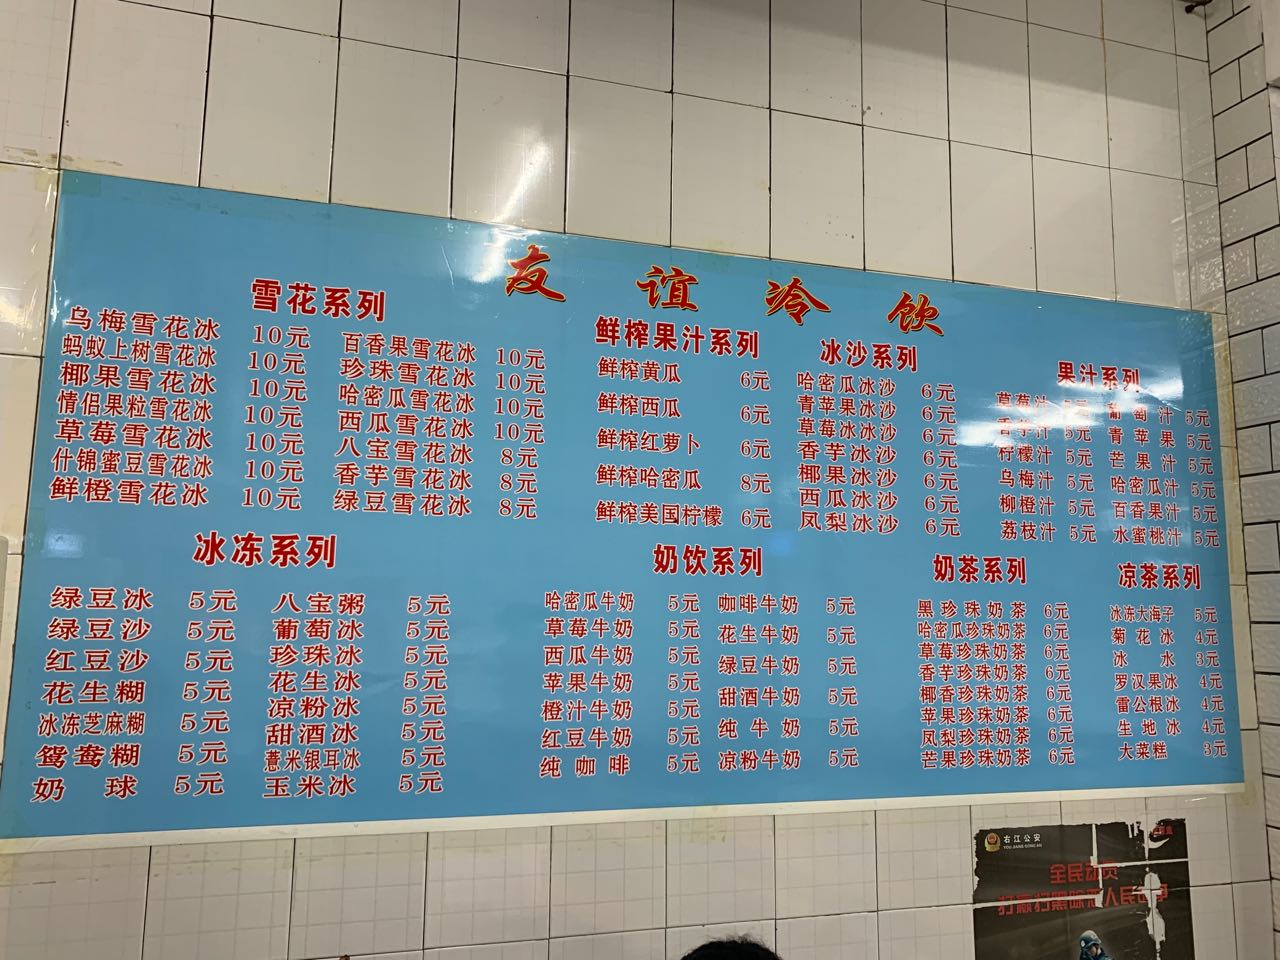 友谊冷饮
雪花系列
乌梅雪花冰 10元
蚂蚁上树雪花冰 10元
椰果雪花冰 10元
情侣果粒雪花冰 10元
草莓雪花冰 10元
什锦蜜豆雪花冰 10元
鲜橙雪花冰 10元
百香果雪花冰 10元
珍珠雪花冰 10元
哈密瓜雪花冰 10元
西瓜雪花冰 10元
八宝雪花冰 8元
香芋雪花冰 8元
绿豆雪花冰 8元
鲜榨果汁系列
鲜榨黄瓜 6元
鲜榨西瓜 6元
鲜榨红萝卜 6元
鲜榨哈密瓜 8元
鲜榨美国柠檬 6元
冰沙系列
哈密瓜冰沙 6元
青苹果冰沙 6元
草莓冰冰沙 6元
香芋冰沙 6元
椰果冰沙 6元
西瓜冰沙 6元
凤梨冰沙 6元
果汁系列
草莓汁 5元
香芋汁 5元
柠檬汁 5元
乌梅汁 5元
柳橙汁 5元
荔枝汁 5元
葡萄汁 5元
青苹果 5元
芒果汁 5元
哈密瓜汁 5元
百香果汁 5元
水蜜桃汁 5元
冰冻系列
绿豆冰 5元
绿豆沙 5元
红豆沙 5元
花生糊 5元
冰冻芝麻糊 5元
鸳鸯糊 5元
奶球 5元
八宝粥 5元
葡萄冰 5元
珍珠冰 5元
花生冰 5元
凉粉冰 5元
甜酒冰 5元
薏米银耳冰 5元
玉米冰 5元
奶饮系列
哈密瓜牛奶 5元
草莓牛奶 5元
西瓜牛奶 5元
苹果牛奶 5元
橙汁牛奶 5元
红豆牛奶 5元
纯咖啡 5元
咖啡牛奶 5元
花生牛奶 5元
绿豆牛奶 5元
甜酒牛奶 5元
纯牛奶 5元
凉粉牛奶 5元
奶茶系列
黑珍珠奶茶 6元
哈密瓜珍珠奶茶 6元
草莓珍珠奶茶 6元
香芋珍珠奶茶 6元
椰香珍珠奶茶 6元
苹果珍珠奶茶 6元
凤梨珍珠奶茶 6元
芒果珍珠奶茶 6元
凉茶系列
冰冻大海子 5元
菊花冰 4元
冰水 3元
罗汉果冰 4元
雷公根冰 4元
生地冰 4元
大菜糕 3元
右江公安
全民动员
打赢扫黑除恶人民战争